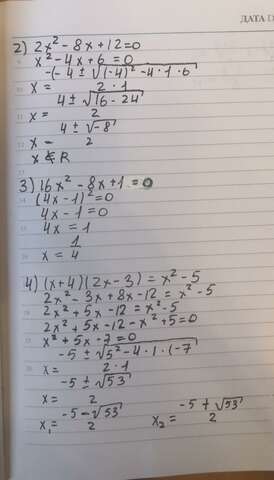 ДАТА
2) 2x² - 8x + 12 = 0
x² - 4x + 6 = 0
x = (-(-4 ± √((-4)² - 4 · 1 · 6))) / (2 · 1)
x = (4 ± √(16 - 24)) / 2
x = (4 ± √(-8)) / 2
x ∉ R
3) 16x² - 8x + 1 = 0
(4x - 1)² = 0
4x - 1 = 0
4x = 1
x = 1/4
4) (x+4)(2x-3) = x² - 5
2x² - 3x + 8x - 12 = x² - 5
2x² + 5x - 12 = x² - 5
2x² + 5x - 12 - x² + 5 = 0
x² + 5x - 7 = 0
x = (-5 ± √(5² - 4 · 1 · (-7)) / (2 · 1)
x = (-5 ± √53) / 2
x₁ = (-5 - √53) / 2 x₂ = (-5 + √53) / 2